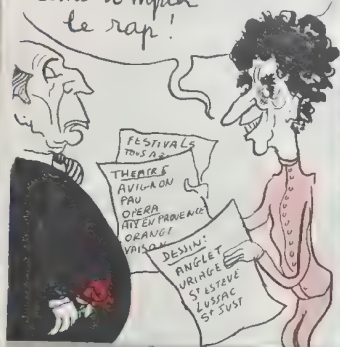 le rap!
FESTIVALS
TOUS AZ
THEATRE
AVIGNON
PAU
OPERA
AIX EN PROVENCE
ORANGE
VAISON
DESSIN:
ANGLET
URIAGE
St ESTEVE
LUSSAC
St JUST